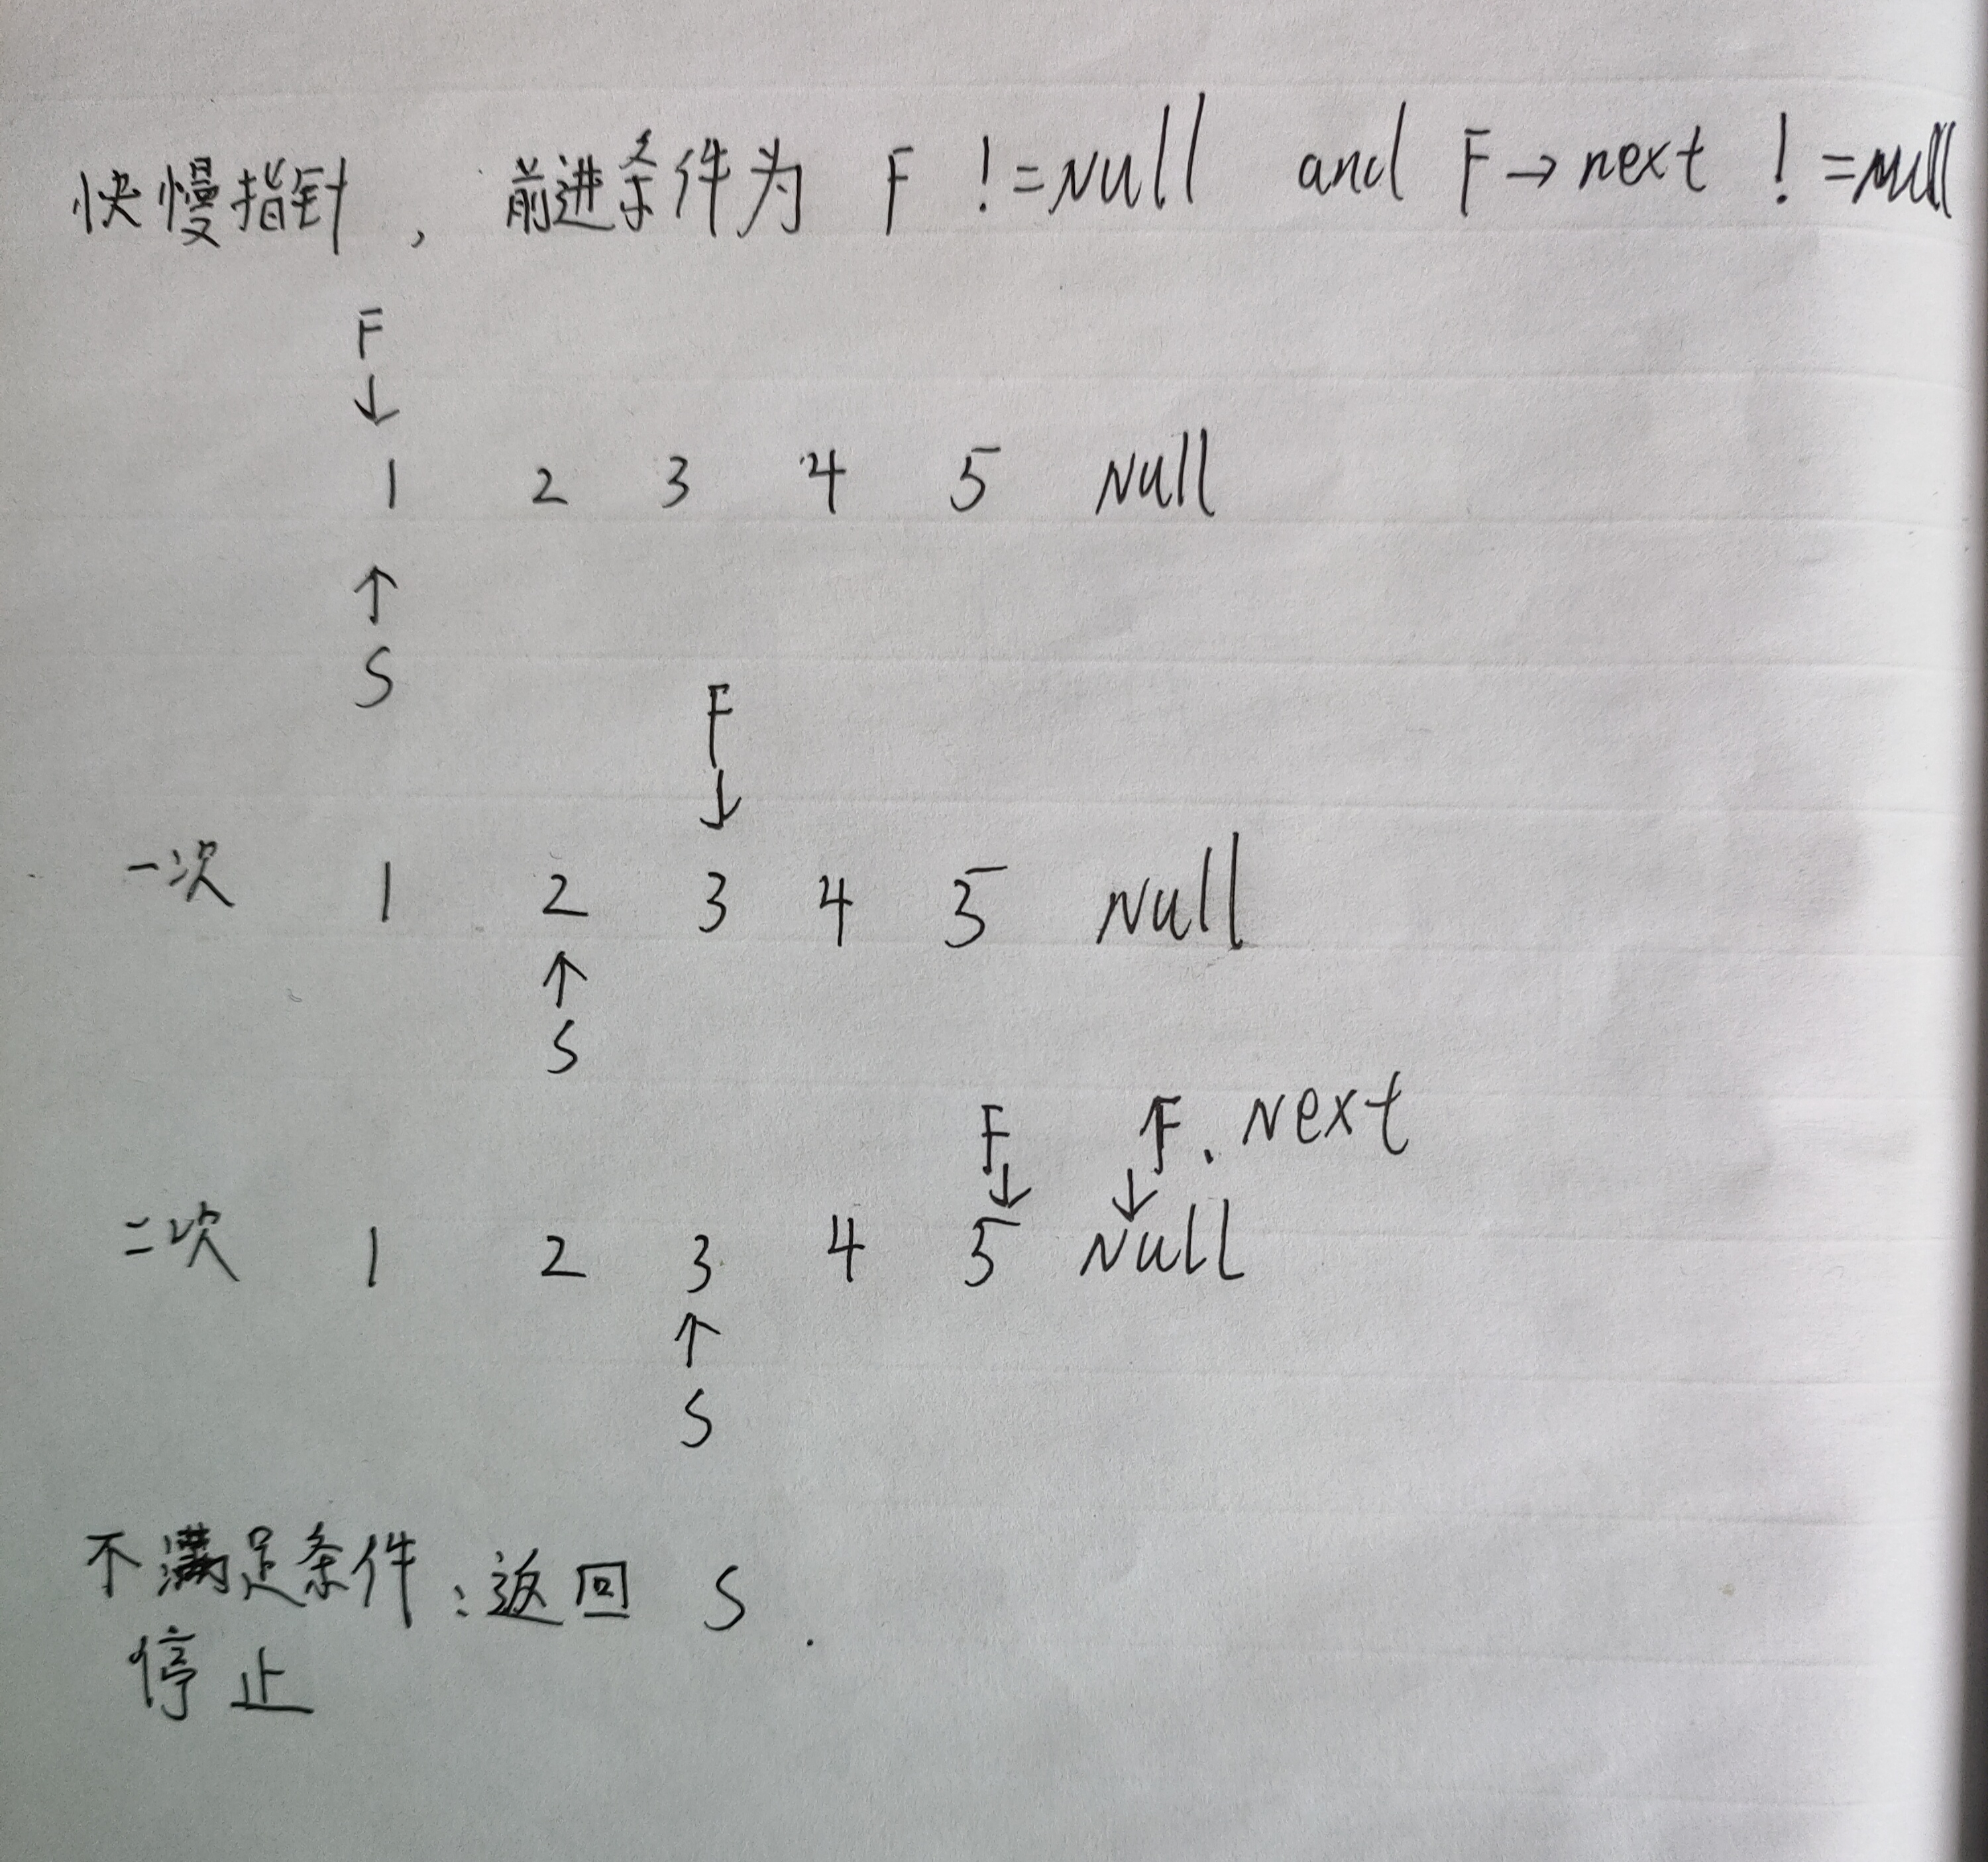 快慢指针, 前进条件为 F != Null and F → next != null
F
↓
1 2 3 4 5 Null
↑
S
F
↓
一次 1 2 3 4 5 Null
↑
S
F F. Next
↓ ↓
二次 1 2 3 4 5 Null
↑
S
不满足条件: 返回 S.
停止